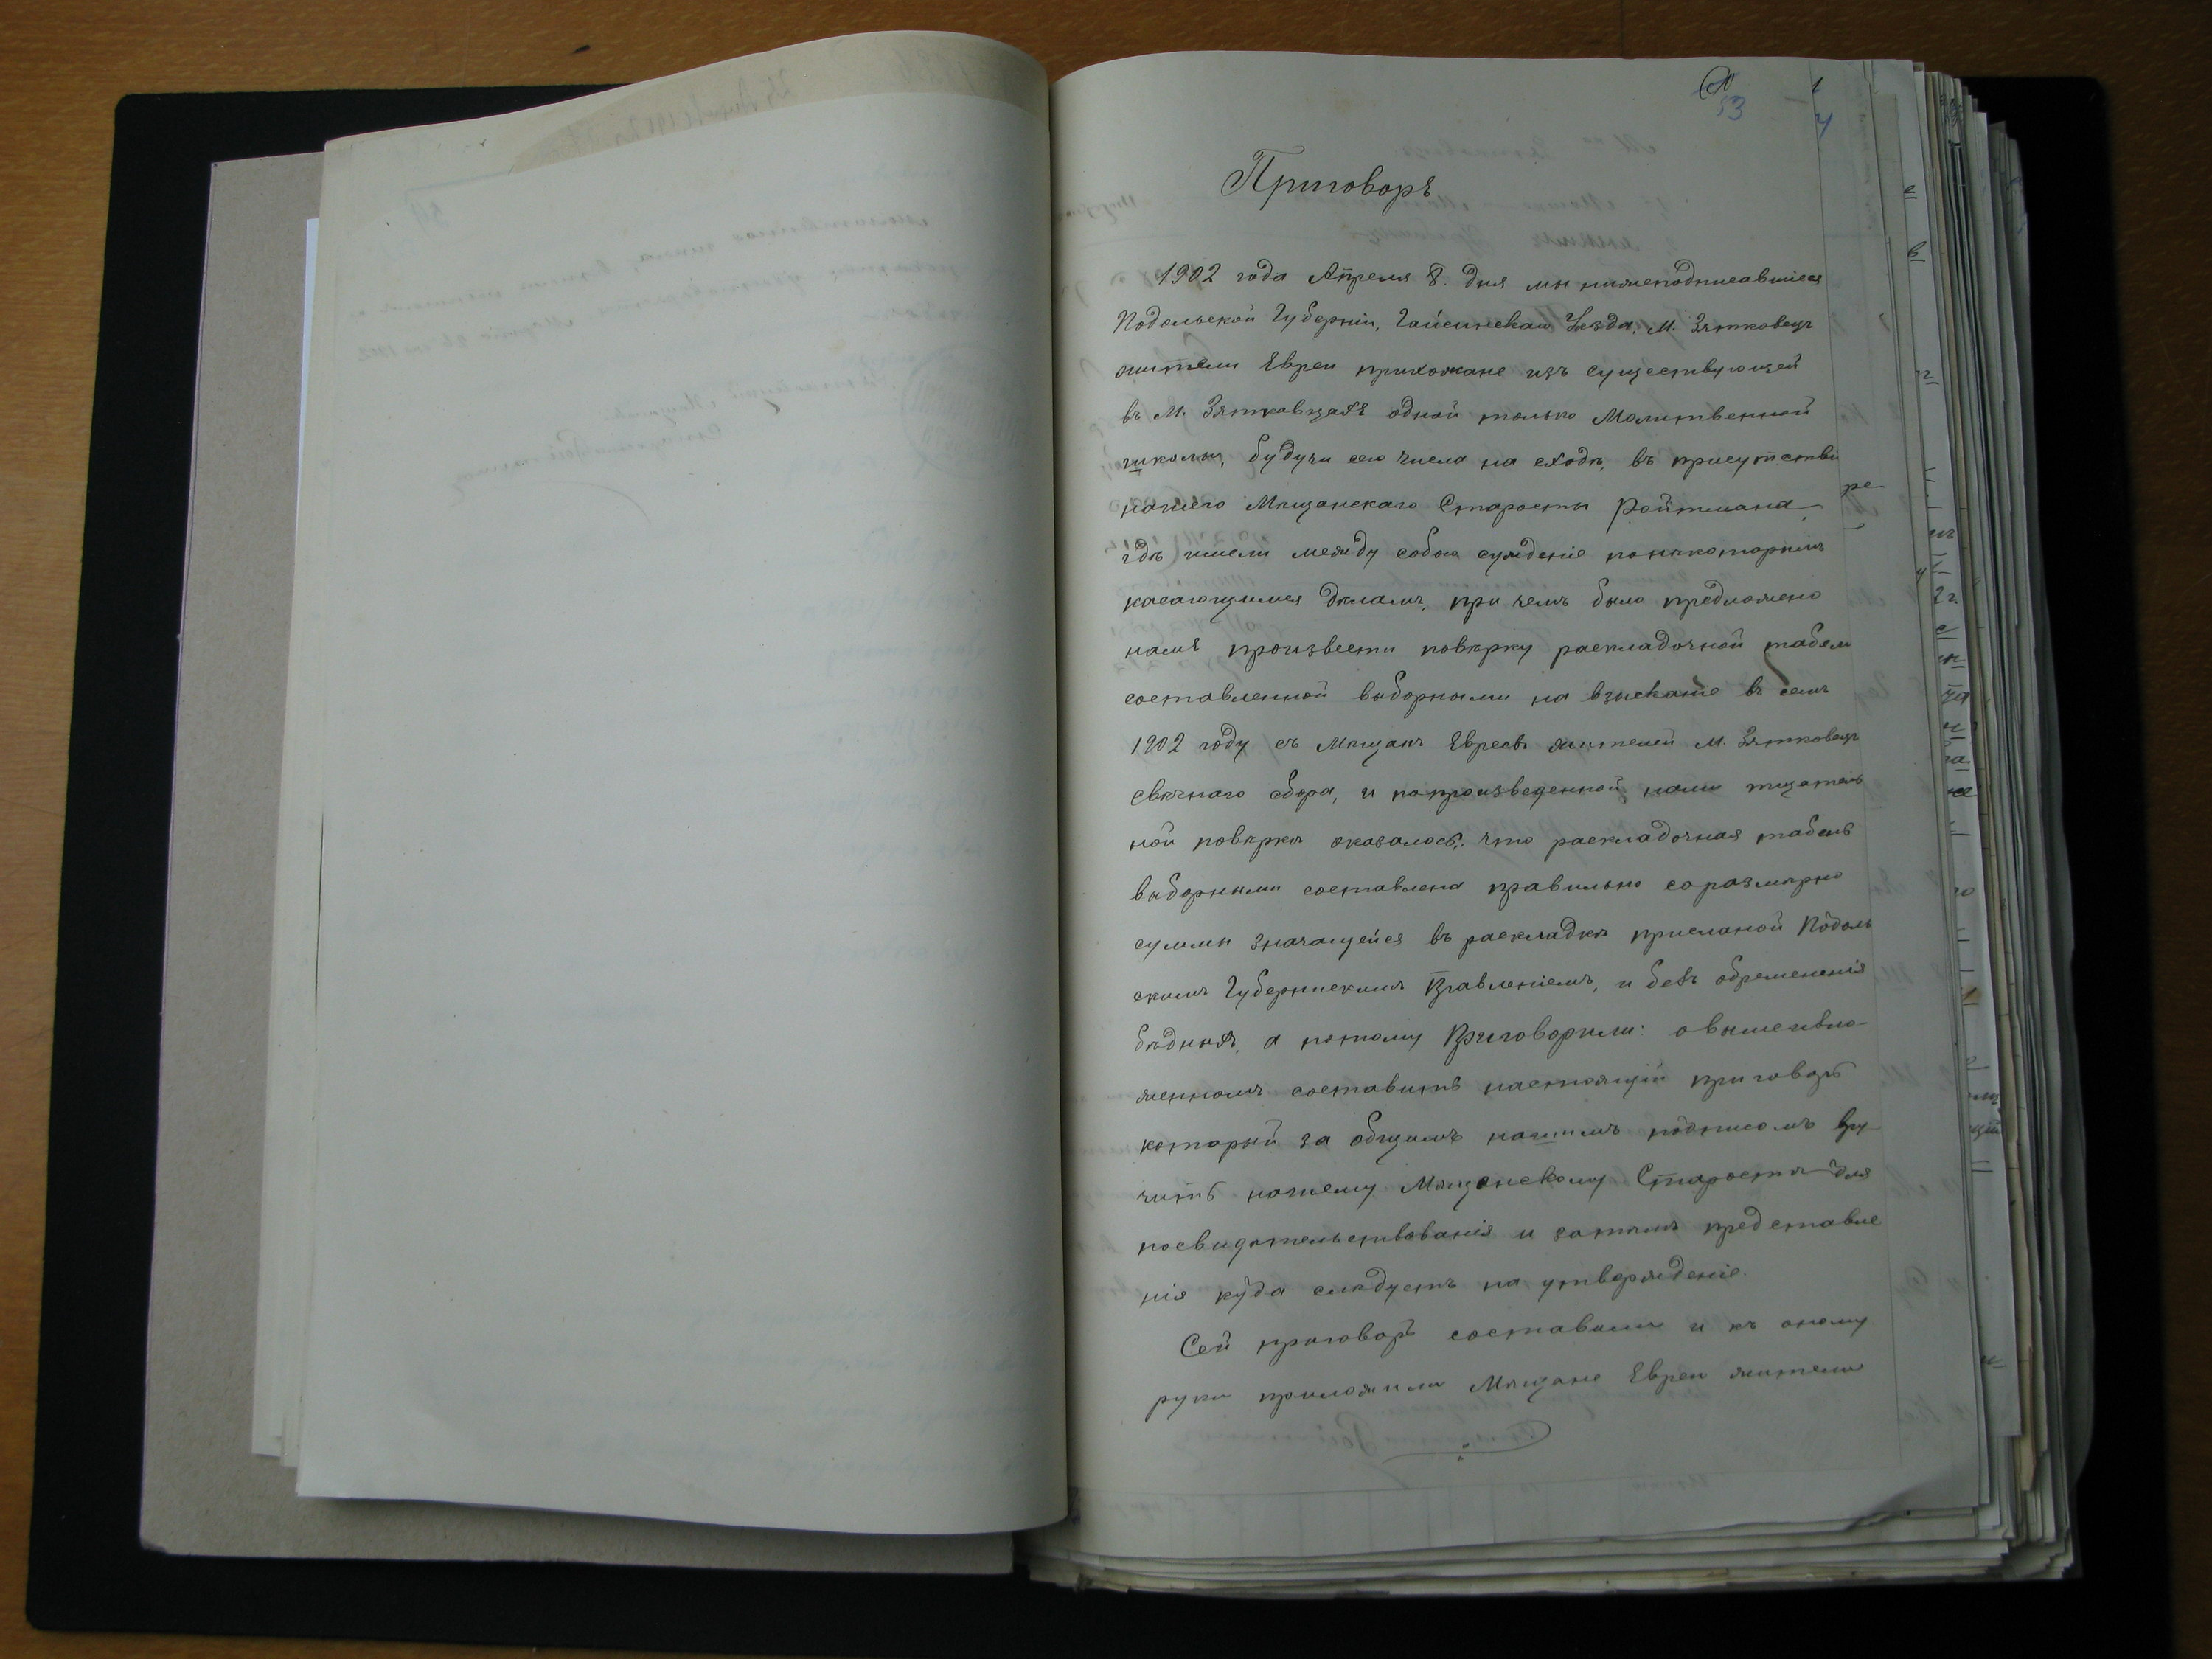 53
4
Приговоръ
1902 года Апреля 8. дня мы нижеподписавшіеся
Подольской Губерніи, Гайсинскаго Уѣзда, М. Зятковецъ
жители Евреи прихожане изъ существующей
въ М. Зятковцахъ одной только Молитвенной
школы, будучи сего числа на сходѣ, въ присутствіи
нашего Мѣщанскаго Старосты Ройтмана,
гдѣ имели между собою сужденіе понѣкоторымъ
касающимся дѣламъ, при чемъ было предложено
намъ произвести повѣрку раскладочной табели
составленной выборными на взысканіе въ семъ
1902 году съ Мѣщанъ Евреевъ жителей М. Зятковецъ
свѣчнаго сбора, и попроизведенной нами тщатель
ной повѣркѣ оказалось, что раскладочная табель
выборными составлена правильно соразмѣрно
суммы значащейся въ раскладкѣ присланой Подоль
скимъ Губернскимъ Правленіемъ, и безъ обремененія
бѣдныхъ, а потому Приговорили: овышеизло-
женномъ составить настоящій приговоръ
который за общимъ нашимъ подписомъ вру
чить нашему Мѣщанскому Старостѣ для
посвидѣтельствованія и затѣмъ представле
нія куда слѣдуетъ на утвержденіе.
Сей приговоръ составили и къ оному
руки приложили Мѣщане Евреи жители